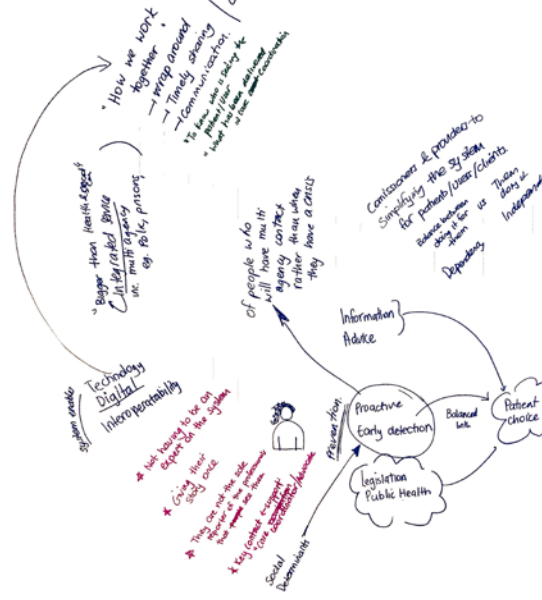 "How we work
together"
→ Wrap around
→ Timely sharing
→ Communication.
"To know who is seeing the
patient/user
"What has been delivered
"Bigger than Health & social"
Integrated service
inc. multi agency
eg. Police, prisons,
System enabler
Technology
Digital
Interoperatability
of people who
will have multi
agency contact
rather than when
they have a crisis
Comissioners & providers to
Simplifying the system
for patients/users/clients.
Balance between
doing it for
them
us
Them
doing it
Dependency
Independence
Information
Advice
Proactive
Early detection
Prevention.
Balanced
Patient
choice
Legislation
Public Health
Social
Determinants
* Not having to be an
expert on the system
* Giving their
story once
* They are not the sole
reporter of the professionals
that see them
* Key contact & support/
"Care coordinator/Advocate